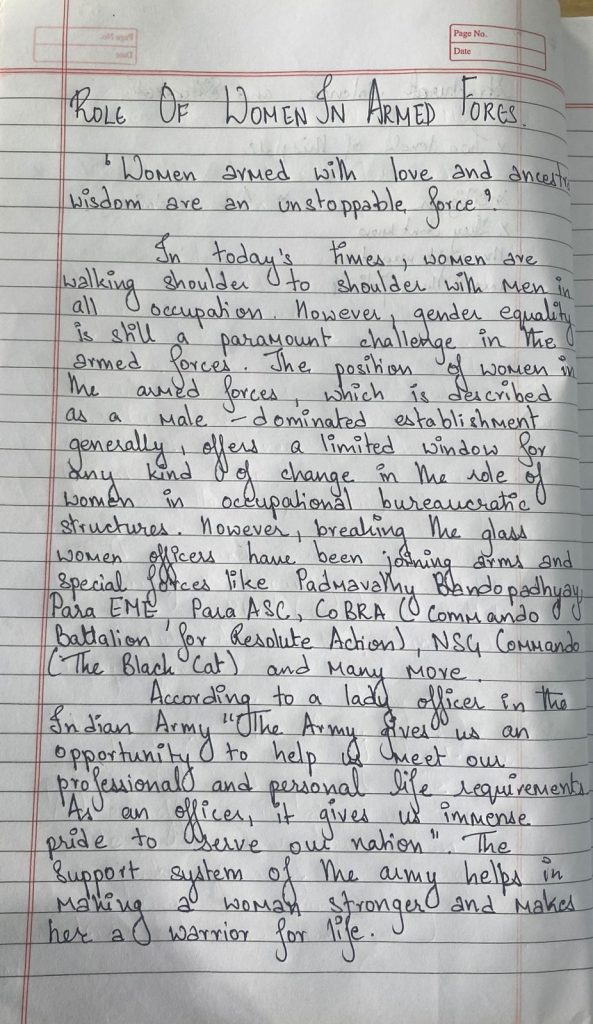 Page No.
Date
ROLE OF WOMEN IN ARMED FORCES.
'Women armed with love and ancestr
wisdom are an unstoppable force'.
In today's times, women are
walking shoulder to shoulder with men in
all occupation. However, gender equality
is still a paramount challenge in the
armed forces. The position of women in
the armed forces, which is described
as a male - dominated establishment
generally, offers a limited window for
any kind of change in the role of
women in occupational bureaucratic
structures. However, breaking the glass
women officers have been joining arms and
special forces like Padmavathy Bandopadhyay,
Para EME, Para ASC, CoBRA (Commando
Battalion for Resolute Action), NSG Commando
(The Black Cat) and many more.
According to a lady officer in the
Indian Army "The Army gives us an
opportunity to help us meet our
professional and personal life requirements.
As an officer, it gives us immense
pride to serve our nation". The
support system of the army helps in
making a woman stronger and makes
her a warrior for life.